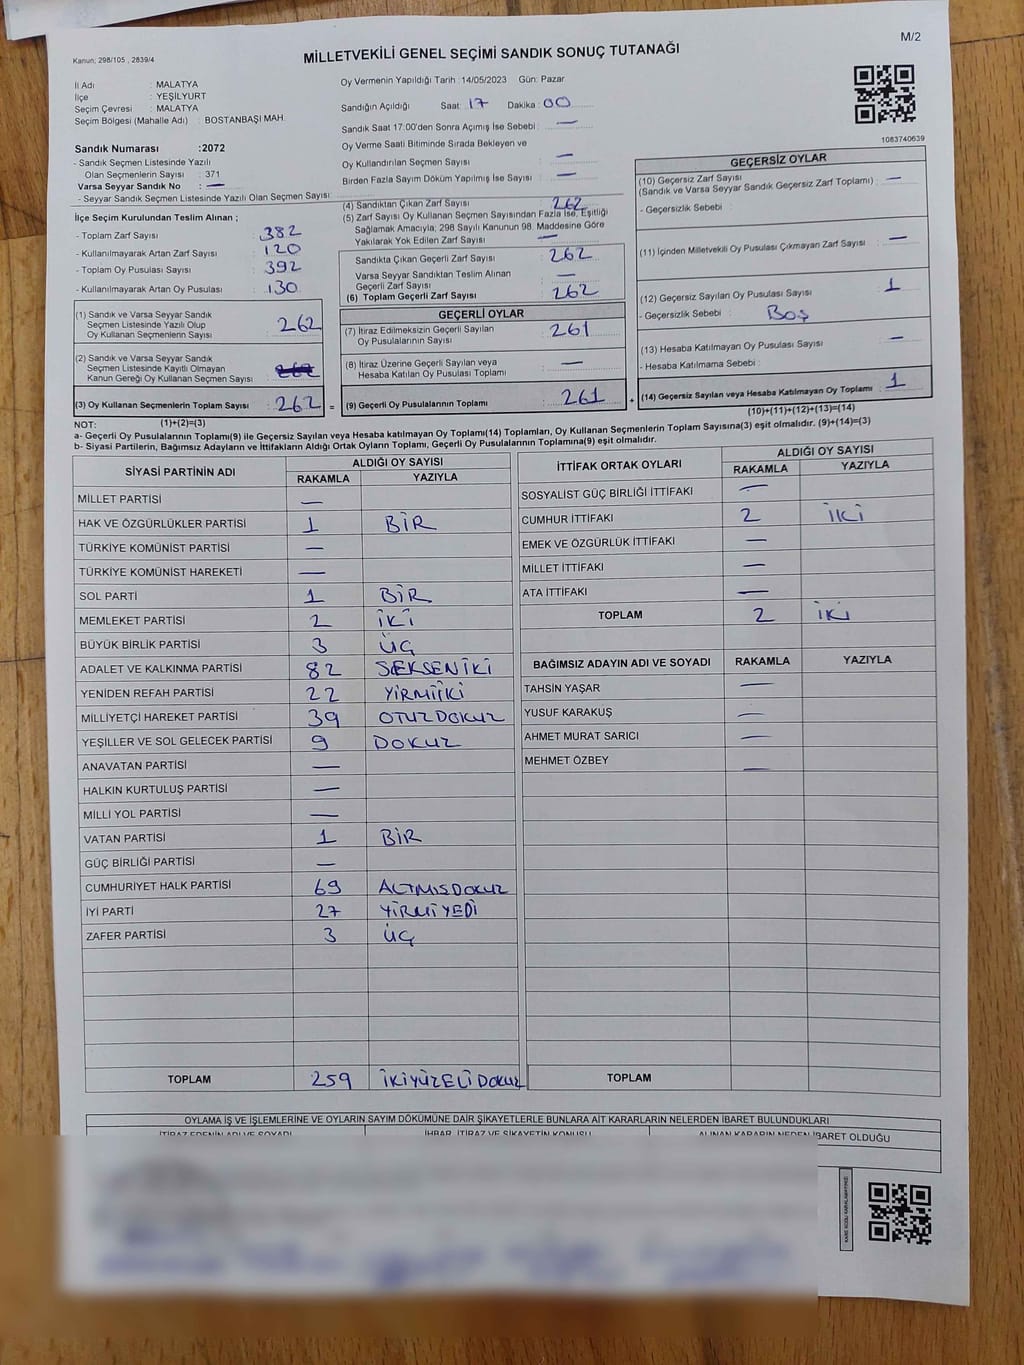 M/2
Kanun; 298/105 , 2839/4
MİLLETVEKİLİ GENEL SEÇİMİ SANDIK SONUÇ TUTANAĞI
İl Adı : MALATYA
İlçe : YEŞİLYURT
Seçim Çevresi : MALATYA
Seçim Bölgesi (Mahalle Adı) : BOSTANBAŞI MAH.
Sandık Numarası :2072
- Sandık Seçmen Listesinde Yazılı
Olan Seçmenlerin Sayısı : 371
Varsa Seyyar Sandık No : —
- Seyyar Sandık Seçmen Listesinde Yazılı Olan Seçmen Sayısı
İlçe Seçim Kurulundan Teslim Alınan ;
- Toplam Zarf Sayısı : 382
- Kullanılmayarak Artan Zarf Sayısı : 120
- Toplam Oy Pusulası Sayısı : 392
- Kullanılmayarak Artan Oy Pusulası : 130
(1) Sandık ve Varsa Seyyar Sandık
Seçmen Listesinde Yazılı Olup
Oy Kullanan Seçmenlerin Sayısı : 262
(2) Sandık ve Varsa Seyyar Sandık
Seçmen Listesinde Kayıtlı Olmayan
Kanun Gereği Oy Kullanan Seçmen Sayısı
(3) Oy Kullanan Seçmenlerin Toplam Sayısı : 262 =
Oy Vermenin Yapıldığı Tarih : 14/05/2023 Gün: Pazar
Sandığın Açıldığı Saat: 17 Dakika : 00
Sandık Saat 17:00'den Sonra Açımış İse Sebebi : —
Oy Verme Saati Bitiminde Sırada Bekleyen ve
Oy Kullandırılan Seçmen Sayısı : —
Birden Fazla Sayım Döküm Yapılmış İse Sayısı : —
(4) Sandıktan Çıkan Zarf Sayısı : 262
(5) Zarf Sayısı Oy Kullanan Seçmen Sayısından Fazla İse, Eşitliği
Sağlamak Amacıyla; 298 Sayılı Kanunun 98. Maddesine Göre
Yakılarak Yok Edilen Zarf Sayısı : —
Sandıkta Çıkan Geçerli Zarf Sayısı : 262
Varsa Seyyar Sandıktan Teslim Alınan
Geçerli Zarf Sayısı : —
(6) Toplam Geçerli Zarf Sayısı : 262
GEÇERLİ OYLAR
(7) İtiraz Edilmeksizin Geçerli Sayılan
Oy Pusulasının Sayısı : 261
(8) İtiraz Üzerine Geçerli Sayılan veya
Hesaba Katılan Oy Pusulası Toplamı : —
(9) Geçerli Oy Pusulalarının Toplamı : 261 +
1083740639
GEÇERSİZ OYLAR
(10) Geçersiz Zarf Sayısı
(Sandık ve Varsa Seyyar Sandık Geçersiz Zarf Toplamı) : —
- Geçersizlik Sebebi :
(11) İçinden Milletvekili Oy Pusulası Çıkmayan Zarf Sayısı : —
(12) Geçersiz Sayılan Oy Pusulası Sayısı : 1
- Geçersizlik Sebebi : Boş
(13) Hesaba Katılmayan Oy Pusulası Sayısı : —
- Hesaba Katılmama Sebebi :
(14) Geçersiz Sayılan veya Hesaba Katılmayan Oy Toplamı : 1
NOT: (1)+(2)=(3) (10)+(11)+(12)+(13)=(14)
a- Geçerli Oy Pusulalarının Toplamı(9) ile Geçersiz Sayılan veya Hesaba katılmayan Oy Toplamı(14) Toplamları, Oy Kullanan Seçmenlerin Toplam Sayısına(3) eşit olmalıdır. (9)+(14)=(3)
b- Siyasi Partilerin, Bağımsız Adayların ve İttifakların Aldığı Ortak Oyların Toplamı, Geçerli Oy Pusulalarının Toplamına(9) eşit olmalıdır.
SİYASİ PARTİNİN ADI ALDIĞI OY SAYISI
RAKAMLA YAZIYLA
MİLLET PARTİSİ —
HAK VE ÖZGÜRLÜKLER PARTİSİ 1 BİR
TÜRKİYE KOMÜNİST PARTİSİ —
TÜRKİYE KOMÜNİST HAREKETİ —
SOL PARTİ 1 BİR
MEMLEKET PARTİSİ 2 İKİ
BÜYÜK BİRLİK PARTİSİ 3 ÜÇ
ADALET VE KALKINMA PARTİSİ 82 SEKSENİKİ
YENİDEN REFAH PARTİSİ 22 YİRMİİKİ
MİLLİYETÇİ HAREKET PARTİSİ 39 OTUZDOKUZ
YEŞİLLER VE SOL GELECEK PARTİSİ 9 DOKUZ
ANAVATAN PARTİSİ —
HALKIN KURTULUŞ PARTİSİ —
MİLLİ YOL PARTİSİ —
VATAN PARTİSİ 1 BİR
GÜÇ BİRLİĞİ PARTİSİ —
CUMHURİYET HALK PARTİSİ 69 ALTMIŞDOKUZ
İYİ PARTİ 27 YİRMİYEDİ
ZAFER PARTİSİ 3 ÜÇ
TOPLAM 259 İKİYÜZELİDOKUZ
İTTİFAK ORTAK OYLARI ALDIĞI OY SAYISI
RAKAMLA YAZIYLA
SOSYALİST GÜÇ BİRLİĞİ İTTİFAKI —
CUMHUR İTTİFAKI 2 İKİ
EMEK VE ÖZGÜRLÜK İTTİFAKI —
MİLLET İTTİFAKI —
ATA İTTİFAKI —
TOPLAM 2 İKİ
BAĞIMSIZ ADAYIN ADI VE SOYADI RAKAMLA YAZIYLA
TAHSİN YAŞAR —
YUSUF KARAKUŞ —
AHMET MURAT SARICI —
MEHMET ÖZBEY —
TOPLAM
OYLAMA İŞ VE İŞLEMLERİNE VE OYLARIN SAYIM DÖKÜMÜNE DAİR ŞİKAYETLERLE BUNLARA AİT KARARLARIN NELERDEN İBARET BULUNDUKLARI
İTİRAZ EDENİN ADI VE SOYADI İHBAR, İTİRAZ VE ŞİKAYETİN KONUSU ALINAN KARARIN NEDEN İBARET OLDUĞU